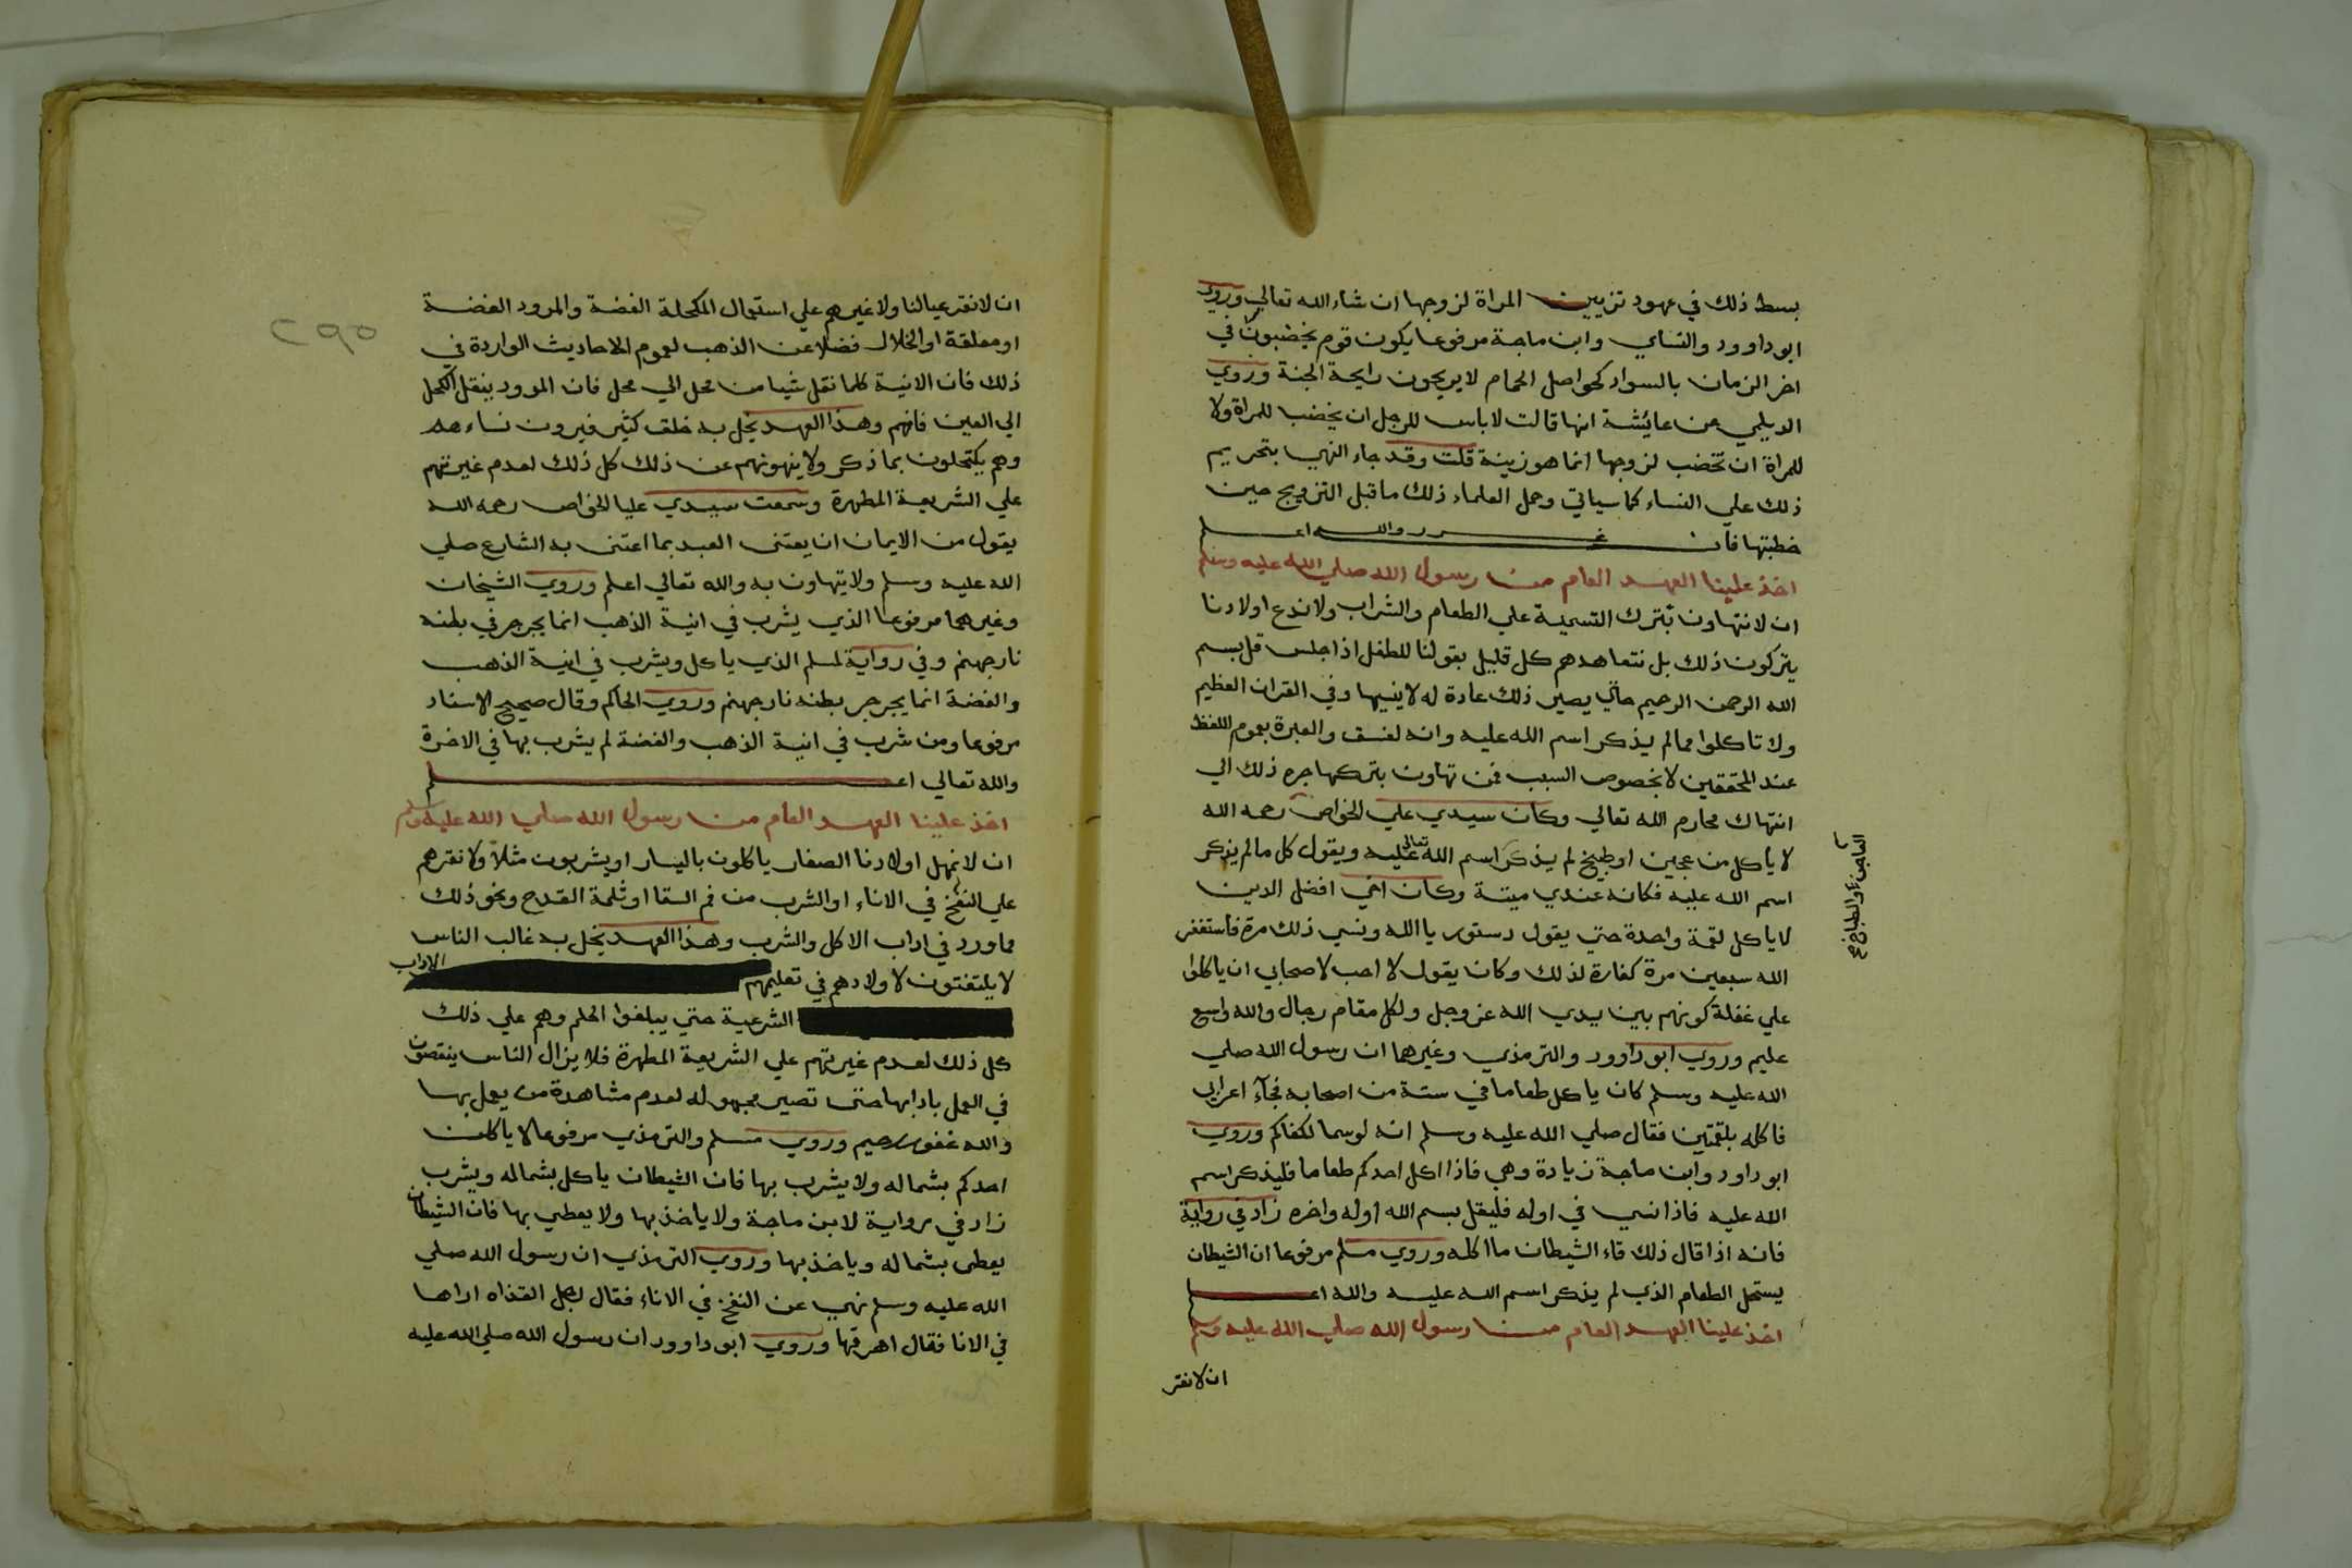 بسط ذلك في عهود تزيين المراة لزوجها ان شاء الله تعالي وروي
ابو داوود والنساي وابن ماجة مرفوعا يكون قوم يخضبون في
اخر الزمان بالسواد كحواصل الحمام لا يريحون رايحة الجنة وروي
الديلمي عن عائشة انها قالت لا باس للرجل ان يخضب للمراة ولا
للمراة ان تخضب لزوجها انما هو زينة قلت وقد جاء النهي بتحريم
ذلك علي النساء كما سياتي وحمل العلماء ذلك ما قبل التزويج حين
خطبتها فان غرر والله اعلم
اخذ علينا العهد العام من رسول الله صلي الله عليه وسلم
ان لا نتهاون بترك التسمية علي الطعام والشراب ولا ندع اولادنا
يتركون ذلك بل نتعاهدهم كل قليل بقولنا للطفل اذا جلس قل بسم
الله الرحمن الرحيم حتي يصير ذلك عادة له لا ينسيها وفي القران العظيم
ولا تاكلوا مما لم يذكر اسم الله عليه وانه لفسق والعبرة بعموم اللفظ
عند المحققين لا بخصوص السبب فمن تهاون بتركها جره ذلك الي
انتهاك محارم الله تعالي وكان سيدي علي الخواص رحمه الله
لا ياكل من عجين او طبيخ لم يذكر اسم الله تعالي عليه ويقول كل ما لم يذكر
العاجن او الطباخ صح
اسم الله عليه فكانه عندي ميتة وكان اخي افضل الدين
لا ياكل لقمة واحدة حتي يقول دستور يا الله ونسي ذلك مرة فاستغفر
الله سبعين مرة كفارة لذلك وكان يقول لا احب لاصحابي ان ياكلوا
علي غفلة كونهم بين يدي الله عز وجل ولكل مقام رجال والله واسع
عليم وروي ابو داوود والترمذي وغيرهما ان رسول الله صلي
الله عليه وسلم كان ياكل طعاما في ستة من اصحابه فجآء اعرابي
فاكله بلقمتين فقال صلي الله عليه وسلم انه لو سما لكفاكم وروي
ابو داود وابن ماجة زيادة وهي فاذا اكل احدكم طعاما فليذكر اسم
الله عليه فاذا نسي في اوله فليقل بسم الله اوله واخره زاد في رواية
فانه اذا قال ذلك قاء الشيطان ما اكله وروي مسلم مرفوعا ان الشيطان
يستحل الطعام الذي لم يذكر اسم الله عليه والله اعلم
اخذ علينا العهد العام من رسول الله صلي الله عليه وسلم
ان لا نقر
٢٩٥
ان لا نقر عيالنا ولا غيرهم علي استعمال المكحلة الفضة والمرود الفضة
او معلقة او الخلال فضلا عن الذهب لعموم الاحاديث الواردة في
ذلك فان الانية كلما نقل شيا من محل الي محل فان المرود ينقل الكحل
الي العين فافهم وهذا العهد يخل به خلق كثير فيرون نساءهم
وهم يكتحلون بما ذكر ولا ينهونهم عن ذلك كل ذلك لعدم غيرتهم
علي الشريعة المطهرة وسمعت سيدي عليا الخواص رحمه الله
يقول من الايمان ان يعتنى العبد بما اعتنى به الشارع صلي
الله عليه وسلم ولا يتهاون به والله تعالي اعلم وروي الشيخان
وغيرهما مرفوعا الذي يشرب في انية الذهب انما يجرجر في بطنه
نار جهنم وفي رواية لمسلم الذي ياكل ويشرب في انية الذهب
والفضة انما يجرجر بطنه نار جهنم وروي الحاكم وقال صحيح الاسناد
مرفوعا ومن شرب في انية الذهب والفضة لم يشرب بها في الاخرة
والله تعالي اعلم
اخذ علينا العهد العام من رسول الله صلي الله عليه وسلم
ان لا نمهل اولادنا الصغار ياكلون باليسار او يشربون مثلاً ولا نقرهم
علي النفخ في الاناء او الشرب من فم السقا او ثلمة القدح ونحو ذلك
مما ورد في اداب الاكل والشرب وهذا العهد يخل به غالب الناس
لا يلتفتون لاولادهم في تعليمهم الاداب
الشرعية حتي يبلغوا الحلم وهم علي ذلك
كل ذلك لعدم غيرتهم علي الشريعة المطهرة فلا يزال الناس ينقصون
في العمل بادابها حتى تصير مجهوله لعدم مشاهدة من يعمل بها
والله غفور رحيم وروي مسلم والترمذي مرفوعا لا ياكلن
احدكم بشماله ولا يشرب بها فان الشيطان ياكل بشماله ويشرب
زاد في رواية لابن ماجة ولا ياخذ بها ولا يعطي بها فان الشيطان
يعطى بشماله وياخذ بها وروي الترمذي ان رسول الله صلي
الله عليه وسلم نهي عن النفخ في الاناء فقال رجل القذاه اراها
في الانا فقال اهرقها وروي ابو داوود ان رسول الله صلي الله عليه